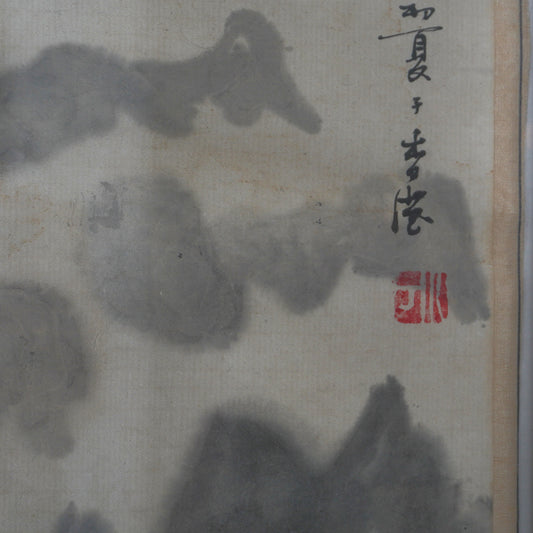 初夏于香港